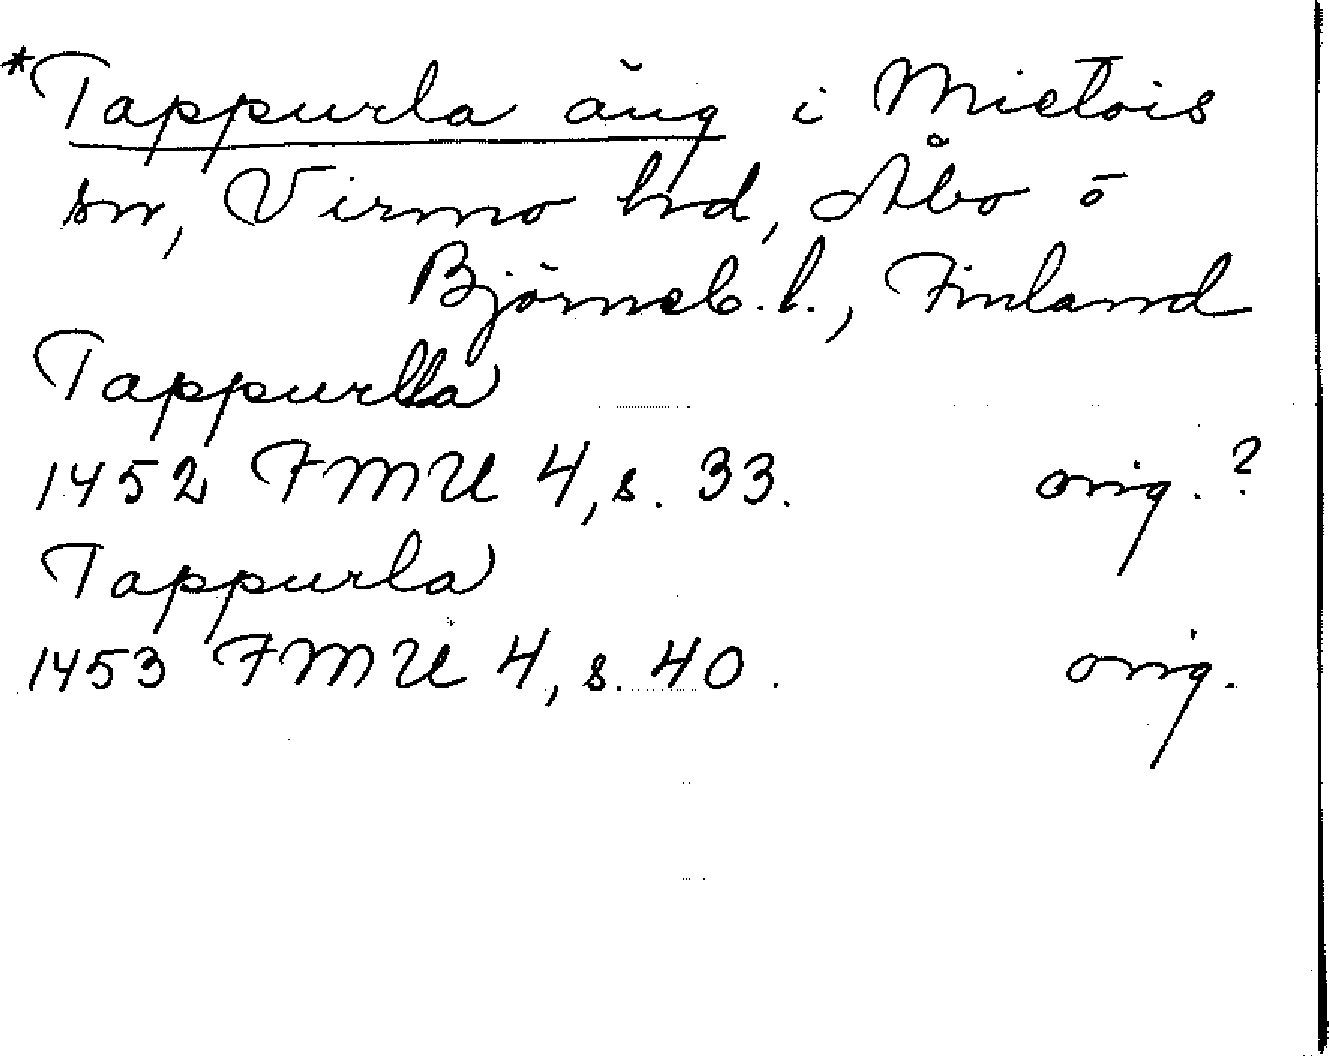 *Tappurla äng i Mietois
sn, Virmo hd, Åbo o
Björneb. l., Finland
Tappurlla
1452 FMU 4, s. 33. orig.?
Tappurla
1453 FMU 4, s. 40. orig.